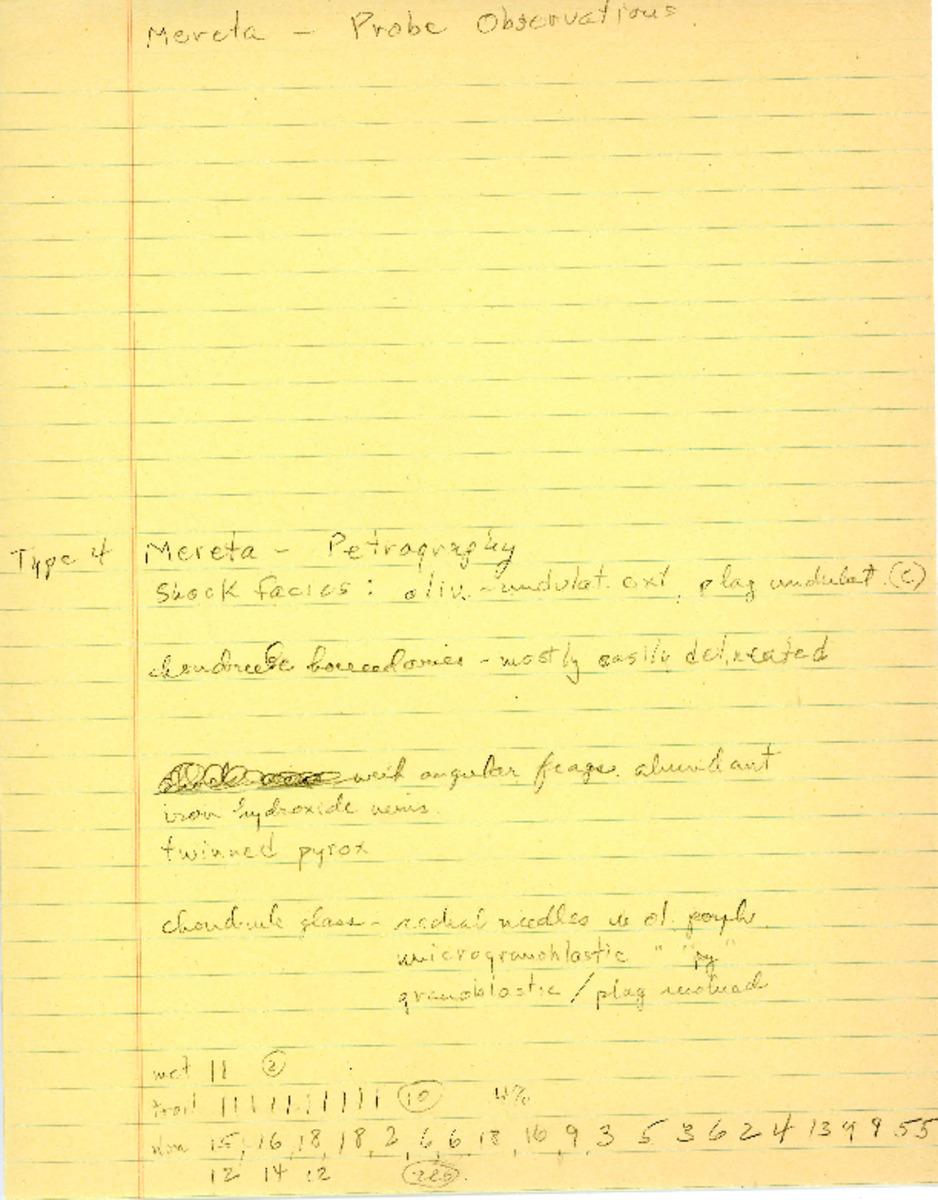 Mereta - Probe Observations
Type 4 Mereta - Petrography
Shock facies: oliv. - undulat. ext, plag undulat. (c)
chondrule boundaries - mostly easily delineated
with angular frags. abundant
iron hydroxide veins.
twinned pyrox
chondrule glass - radial needles in ol. porph.
microgranoblastic " "py"
granoblastic / plag
met || (2)
troil |||||||||| (10) 4%
15, 16, 18, 18, 2, 6, 6, 18, 16, 9, 3 5 3 6 2 4 13 9 9 5 5
12 14 12